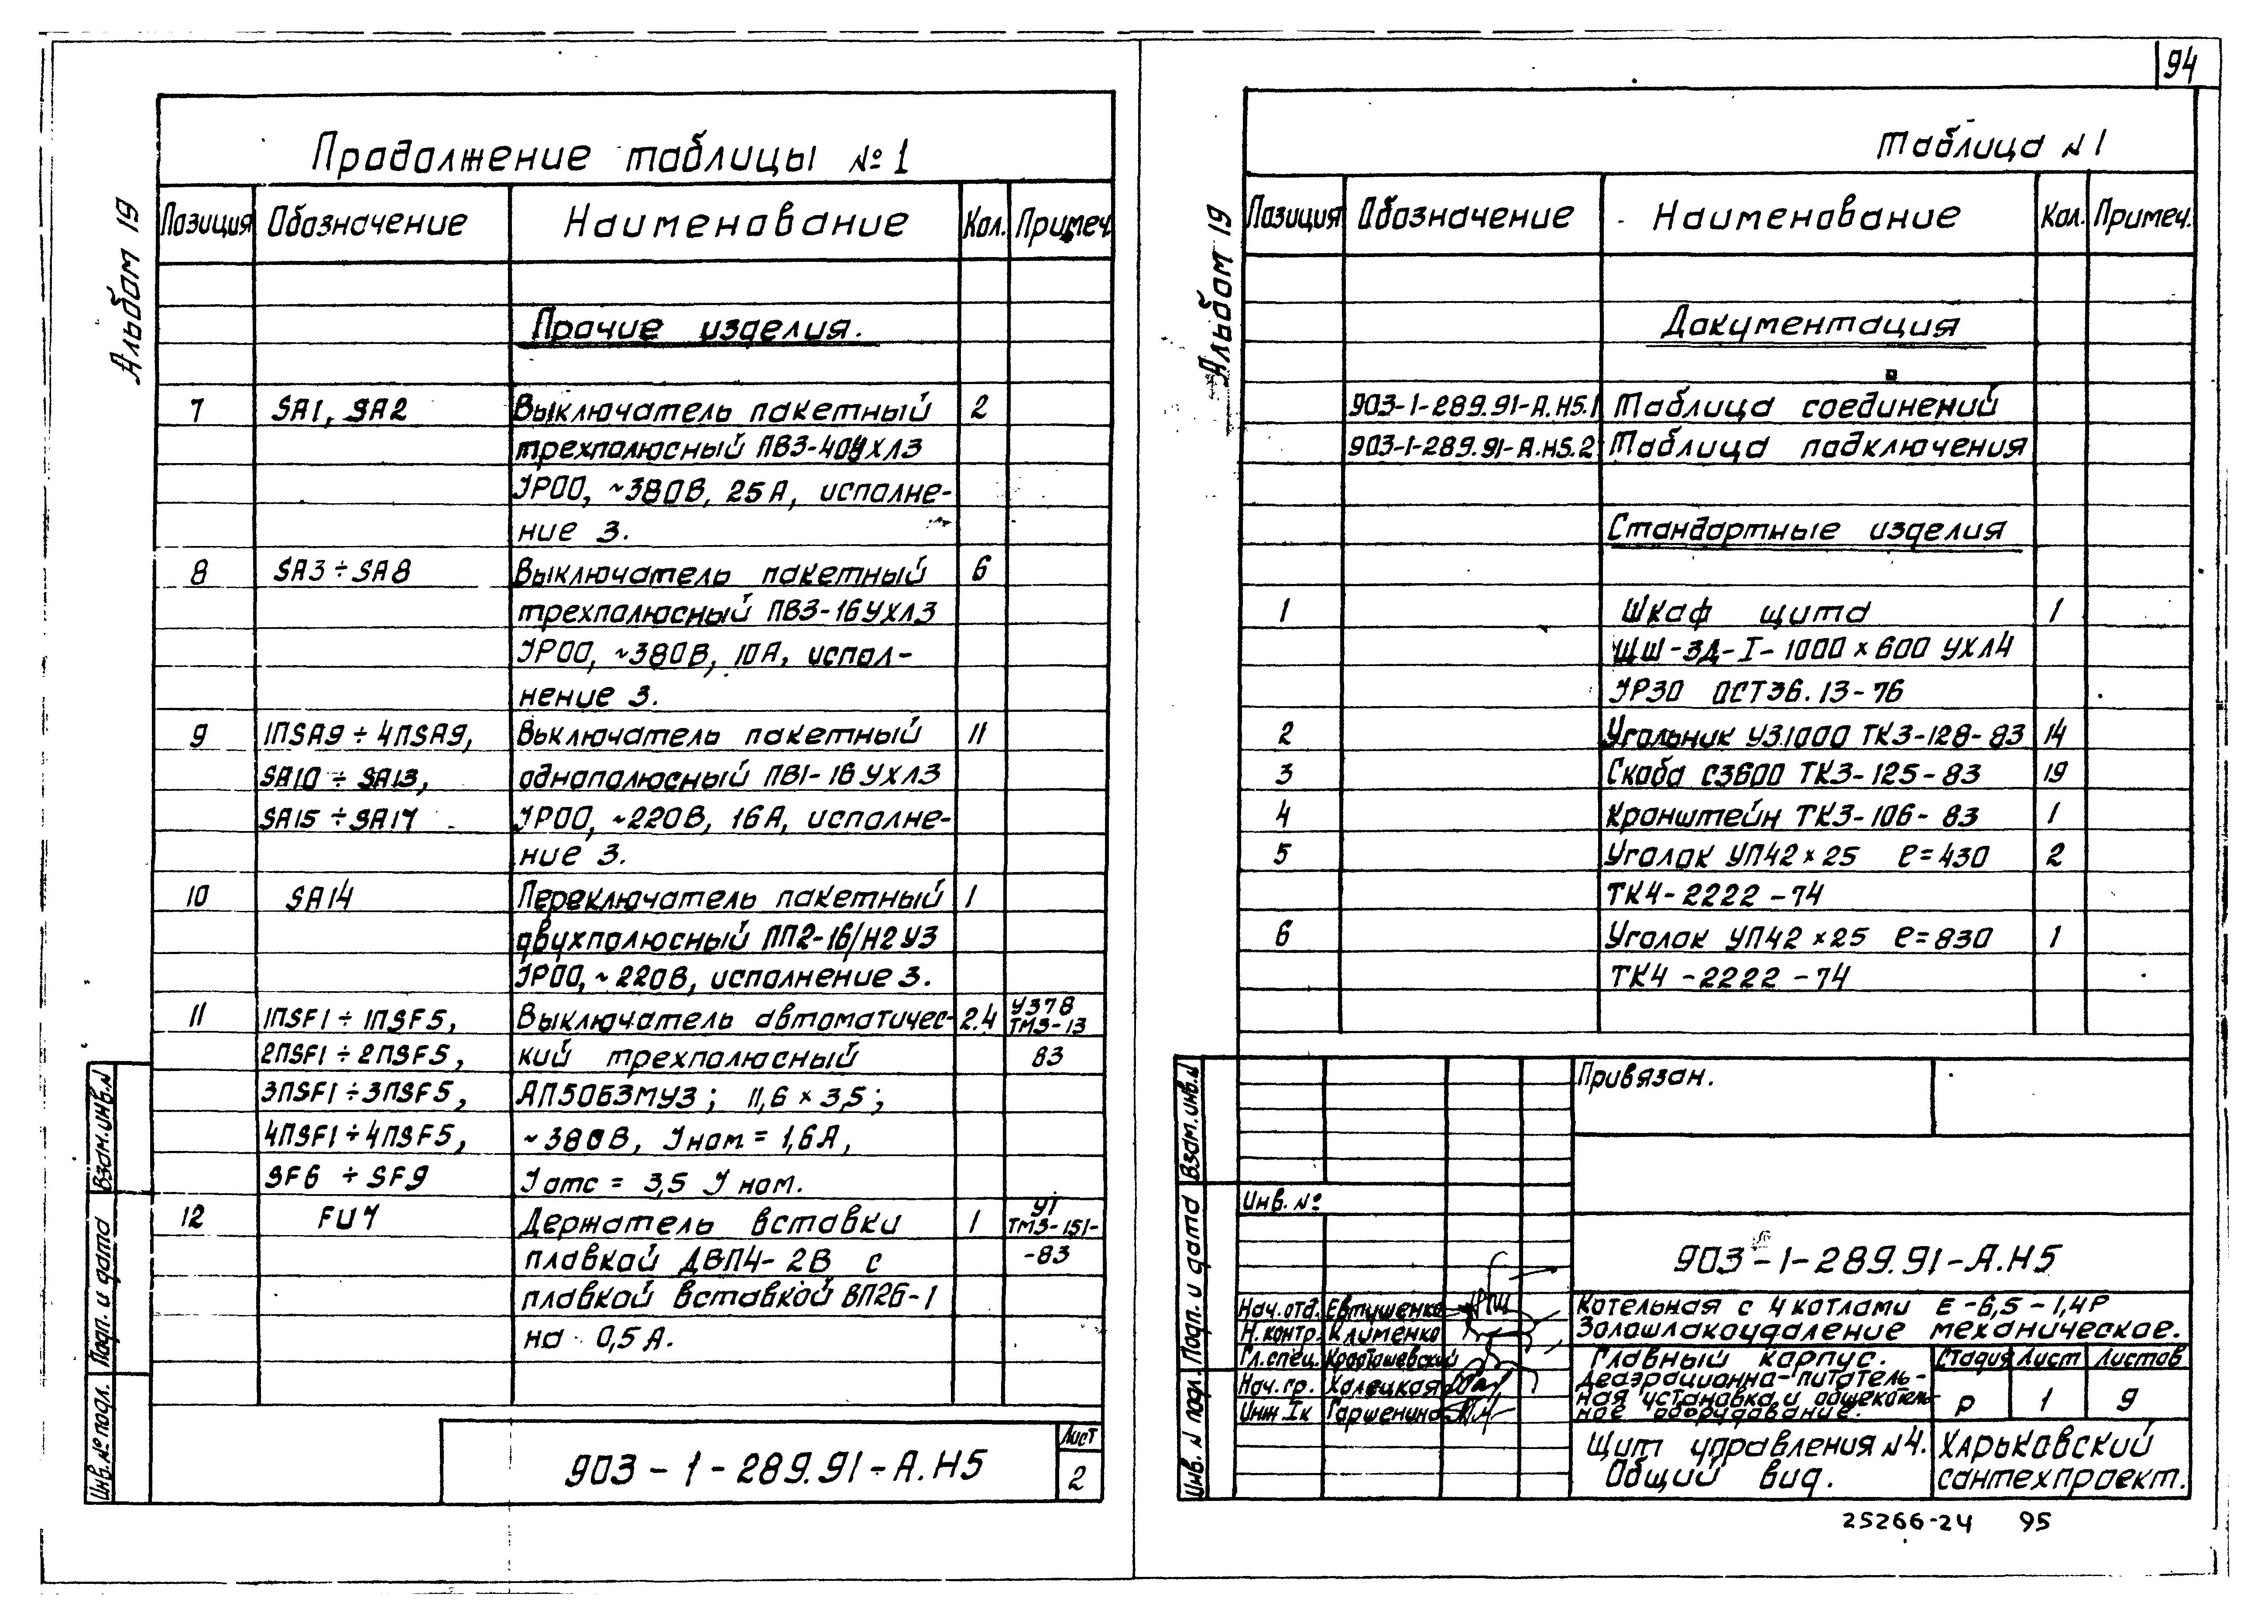 94
Альбом 19
Продолжение таблицы №1
Позиция Обозначение Наименование Кол. Примеч.
Прочие изделия.
7 SA1, SA2 Выключатель пакетный 2
трехполюсный ПВ3-40УХЛ3
IP00, ~380В, 25А, исполне-
ние 3.
8 SA3÷SA8 Выключатель пакетный 6
трехполюсный ПВ3-16УХЛ3
IP00, ~380В, 10А, испол-
нение 3.
9 1ПSA9÷4ПSA9, Выключатель пакетный 11
SA10÷SA13, однополюсный ПВ1-16УХЛ3
SA15÷SA17 IP00, ~220В, 16А, исполне-
ние 3.
10 SA14 Переключатель пакетный 1
двухполюсный ПП2-16/Н2У3
IP00, ~220В, исполнение 3.
11 1ПSF1÷1ПSF5, Выключатель автоматичес- 24 У378 ТМ3-13
2ПSF1÷2ПSF5, кий трехполюсный 83
3ПSF1÷3ПSF5, АП50Б3МУ3; 11,6×3,5;
4ПSF1÷4ПSF5, ~380В, Jном.=1,6А,
SF6÷SF9 Jотс=3,5 Jном.
12 FU7 Держатель вставки 1 У1 ТМ3-151-
плавкой ДВП4-2В с -83
плавкой вставкой ВП2Б-1
на 0,5А.
Инв.№подл. Подп. и дата Взам.инв.N
903-1-289.91-А.Н5
Лист
2
Альбом 19
Таблица N1
Позиция Обозначение Наименование Кол. Примеч.
Документация
903-1-289.91-А.Н5.1 Таблица соединений
903-1-289.91-А.Н5.2 Таблица подключения
Стандартные изделия
1 Шкаф щита 1
ЩШ-ЗД-I-1000×600 УХЛ4
IP30 ОСТ36.13-76
2 Угольник У3.1000 ТК3-128-83 14
3 Скоба С3600 ТК3-125-83 19
4 Кронштейн ТК3-106-83 1
5 Уголок УП42×25 ℓ=430 2
ТК4-2222-74
6 Уголок УП42×25 ℓ=830 1
ТК4-2222-74
Инв. N подл. Подп. и дата Взам.инв.N
Привязан.
Инв. №
903-1-289.91-А.Н5
Нач.отд. Евтушенко
Н.контр. Клименко
Гл.спец.
Нач.гр. Халецкая
Инж Iк Гаршенина
Котельная с 4 котлами Е-6,5-1,4Р
Золошлакоудаление механическое.
Главный корпус.
Деаэрационно-питатель-
ная установка и общекотель-
ное оборудование.
Стадия Лист Листов
Р 1 9
Щит управления N4.
Общий вид.
Харьковский
сантехпроект.
25266-24 95